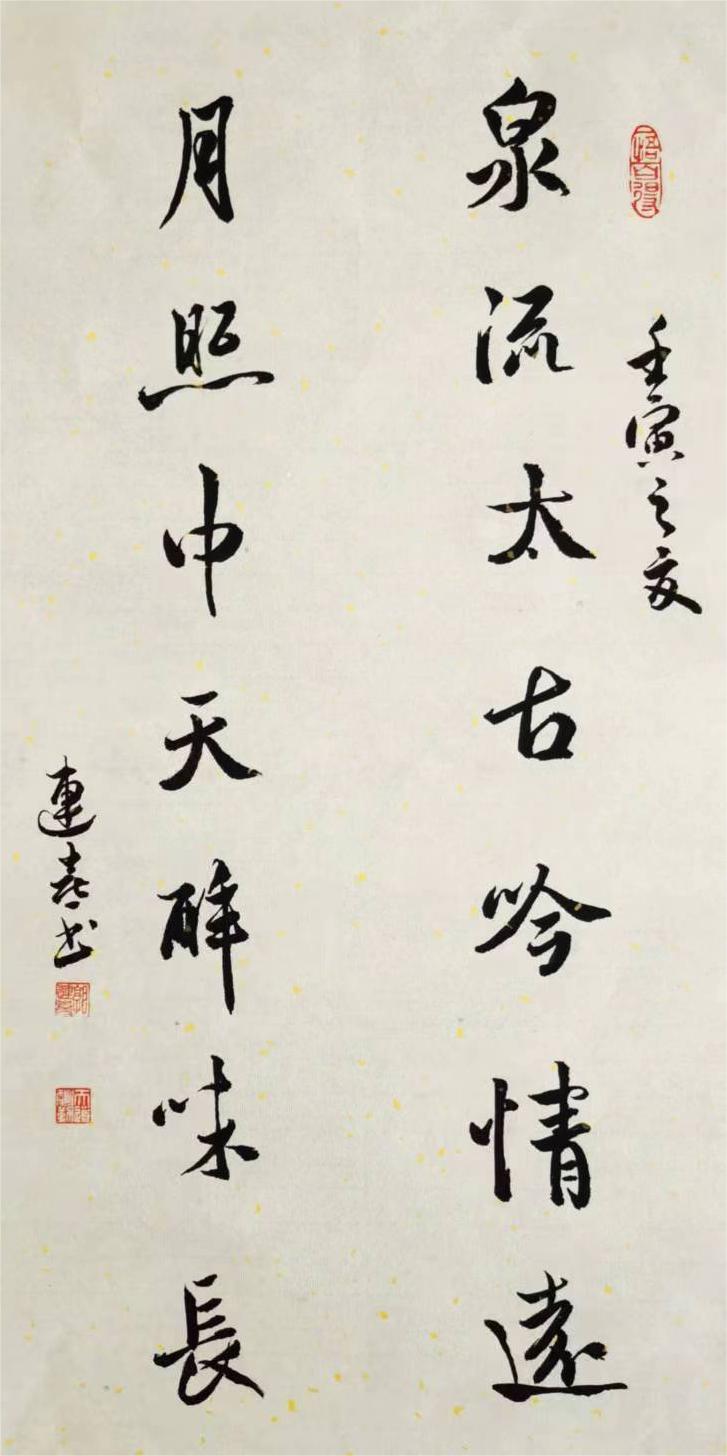 壬寅之夏
泉流太古吟情遠
月照中天醉味長
連喜书